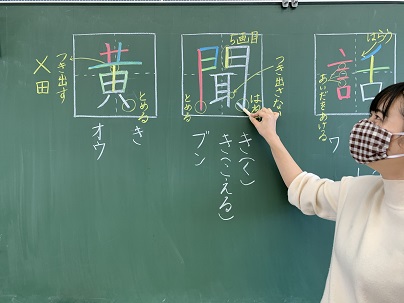 話
はらう
あいだをあける
ワ
聞
5画目
つき出さな
とめる
き(く)
き(こえる)
ブン
黄
つき出す
×田
とめる
き
オウ